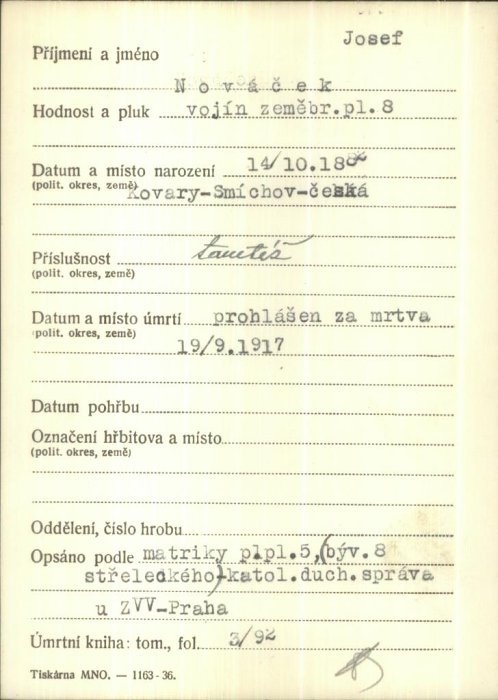 Josef
Příjmení a jméno
Nováček
Hodnost a pluk vojín zeměbr.pl.8
Datum a místo narození 14/10.188
(polit. okres, země) Kovary-Smíchov-česká
Příslušnost tamtéž
(polit. okres, země)
Datum a místo úmrtí prohlášen za mrtva
(polit. okres, země)
19/9.1917
Datum pohřbu
Označení hřbitova a místo
(polit. okres, země)
Oddělení, číslo hrobu
Opsáno podle matriky plpl.5,(býv.8
střeleckého)-katol.duch.správa
u ZVV-Praha
Úmrtní kniha: tom., fol. 3/92
Tiskárna MNO. — 1163-36.